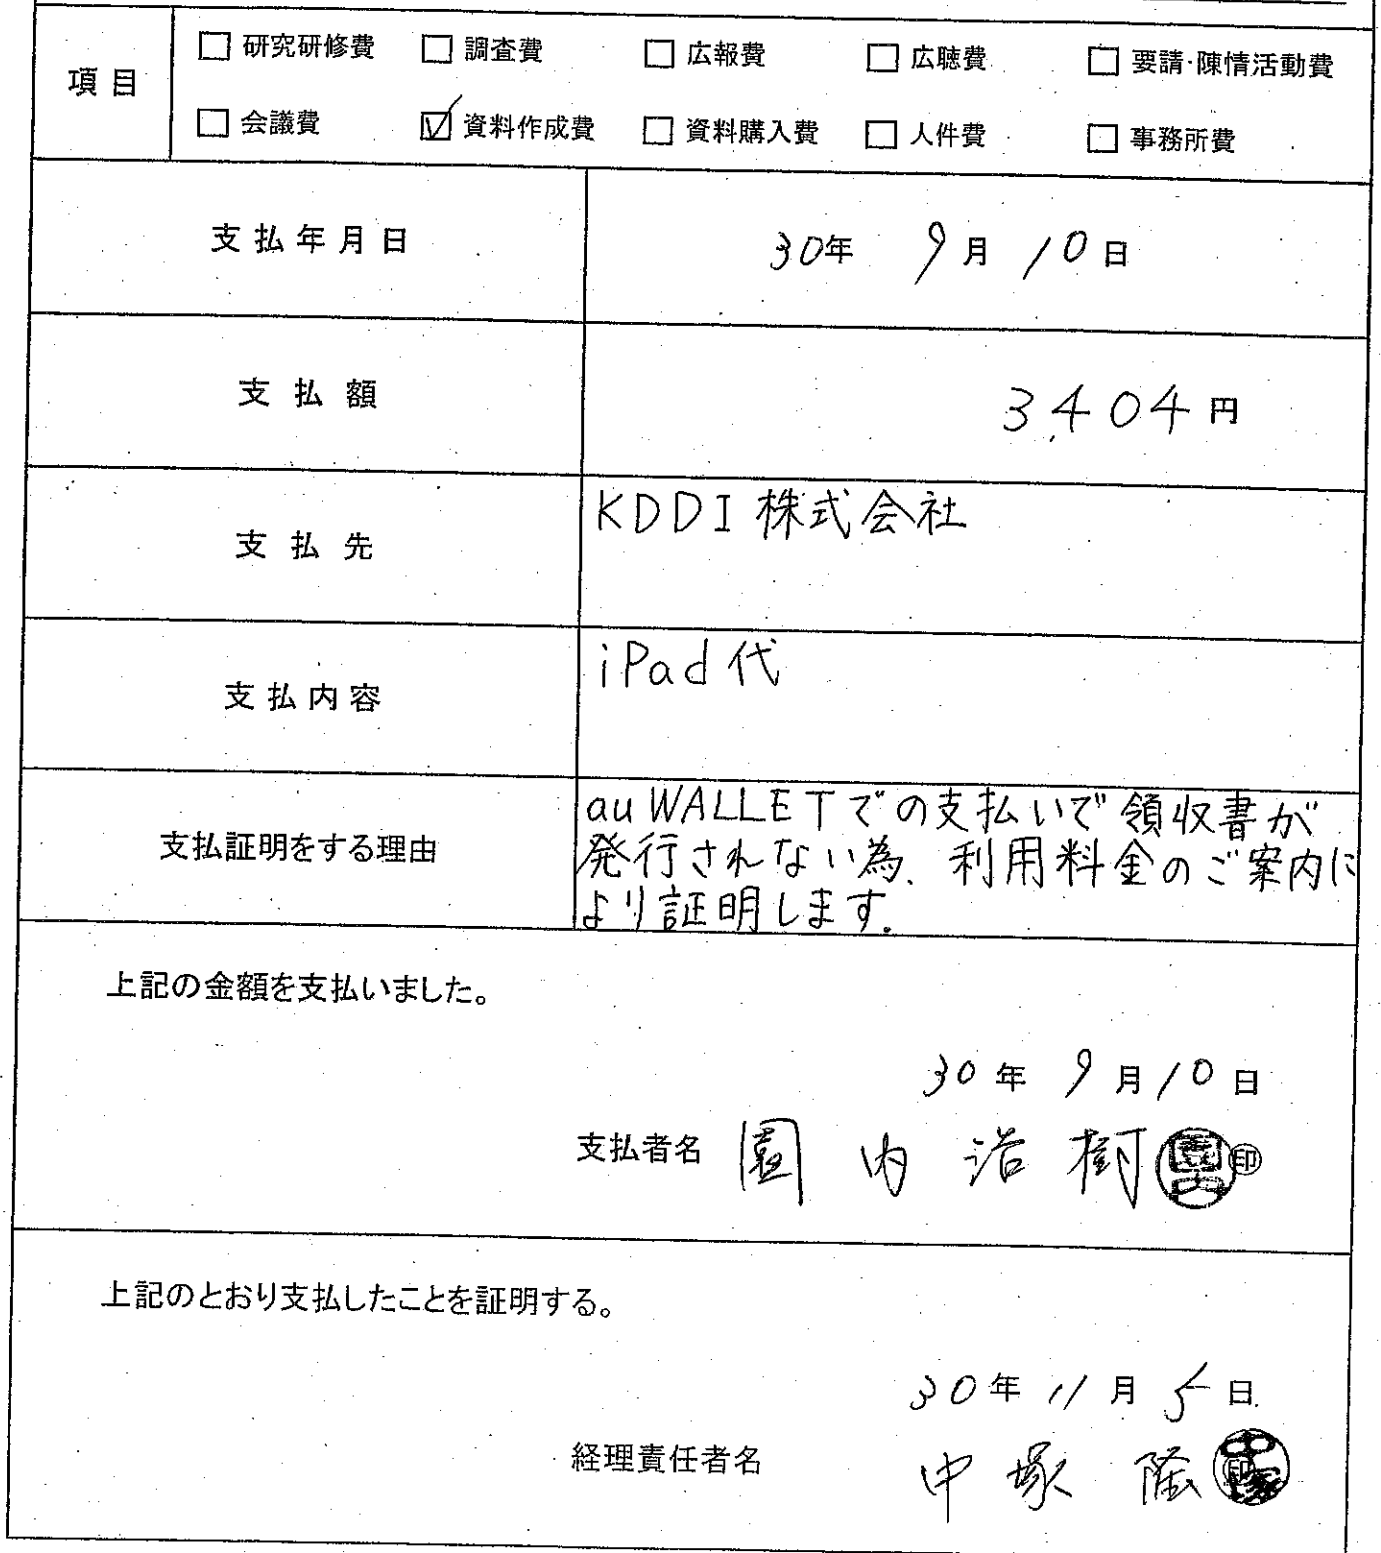 項目
□ 研究研修費 □ 調査費 □ 広報費 □ 広聴費 □ 要請・陳情活動費
□ 会議費 ☑ 資料作成費 □ 資料購入費 □ 人件費 □ 事務所費
支払年月日 30年 9月 10日
支払額 3,404円
支払先 KDDI株式会社
支払内容 iPad代
支払証明をする理由
au WALLETでの支払いで領収書が
発行されない為、利用料金のご案内に
より証明します。
上記の金額を支払いました。
30年 9月10日
支払者名 園内浩樹 ㊞
上記のとおり支払したことを証明する。
30年 11月 5日
経理責任者名 中塚隆 ㊞